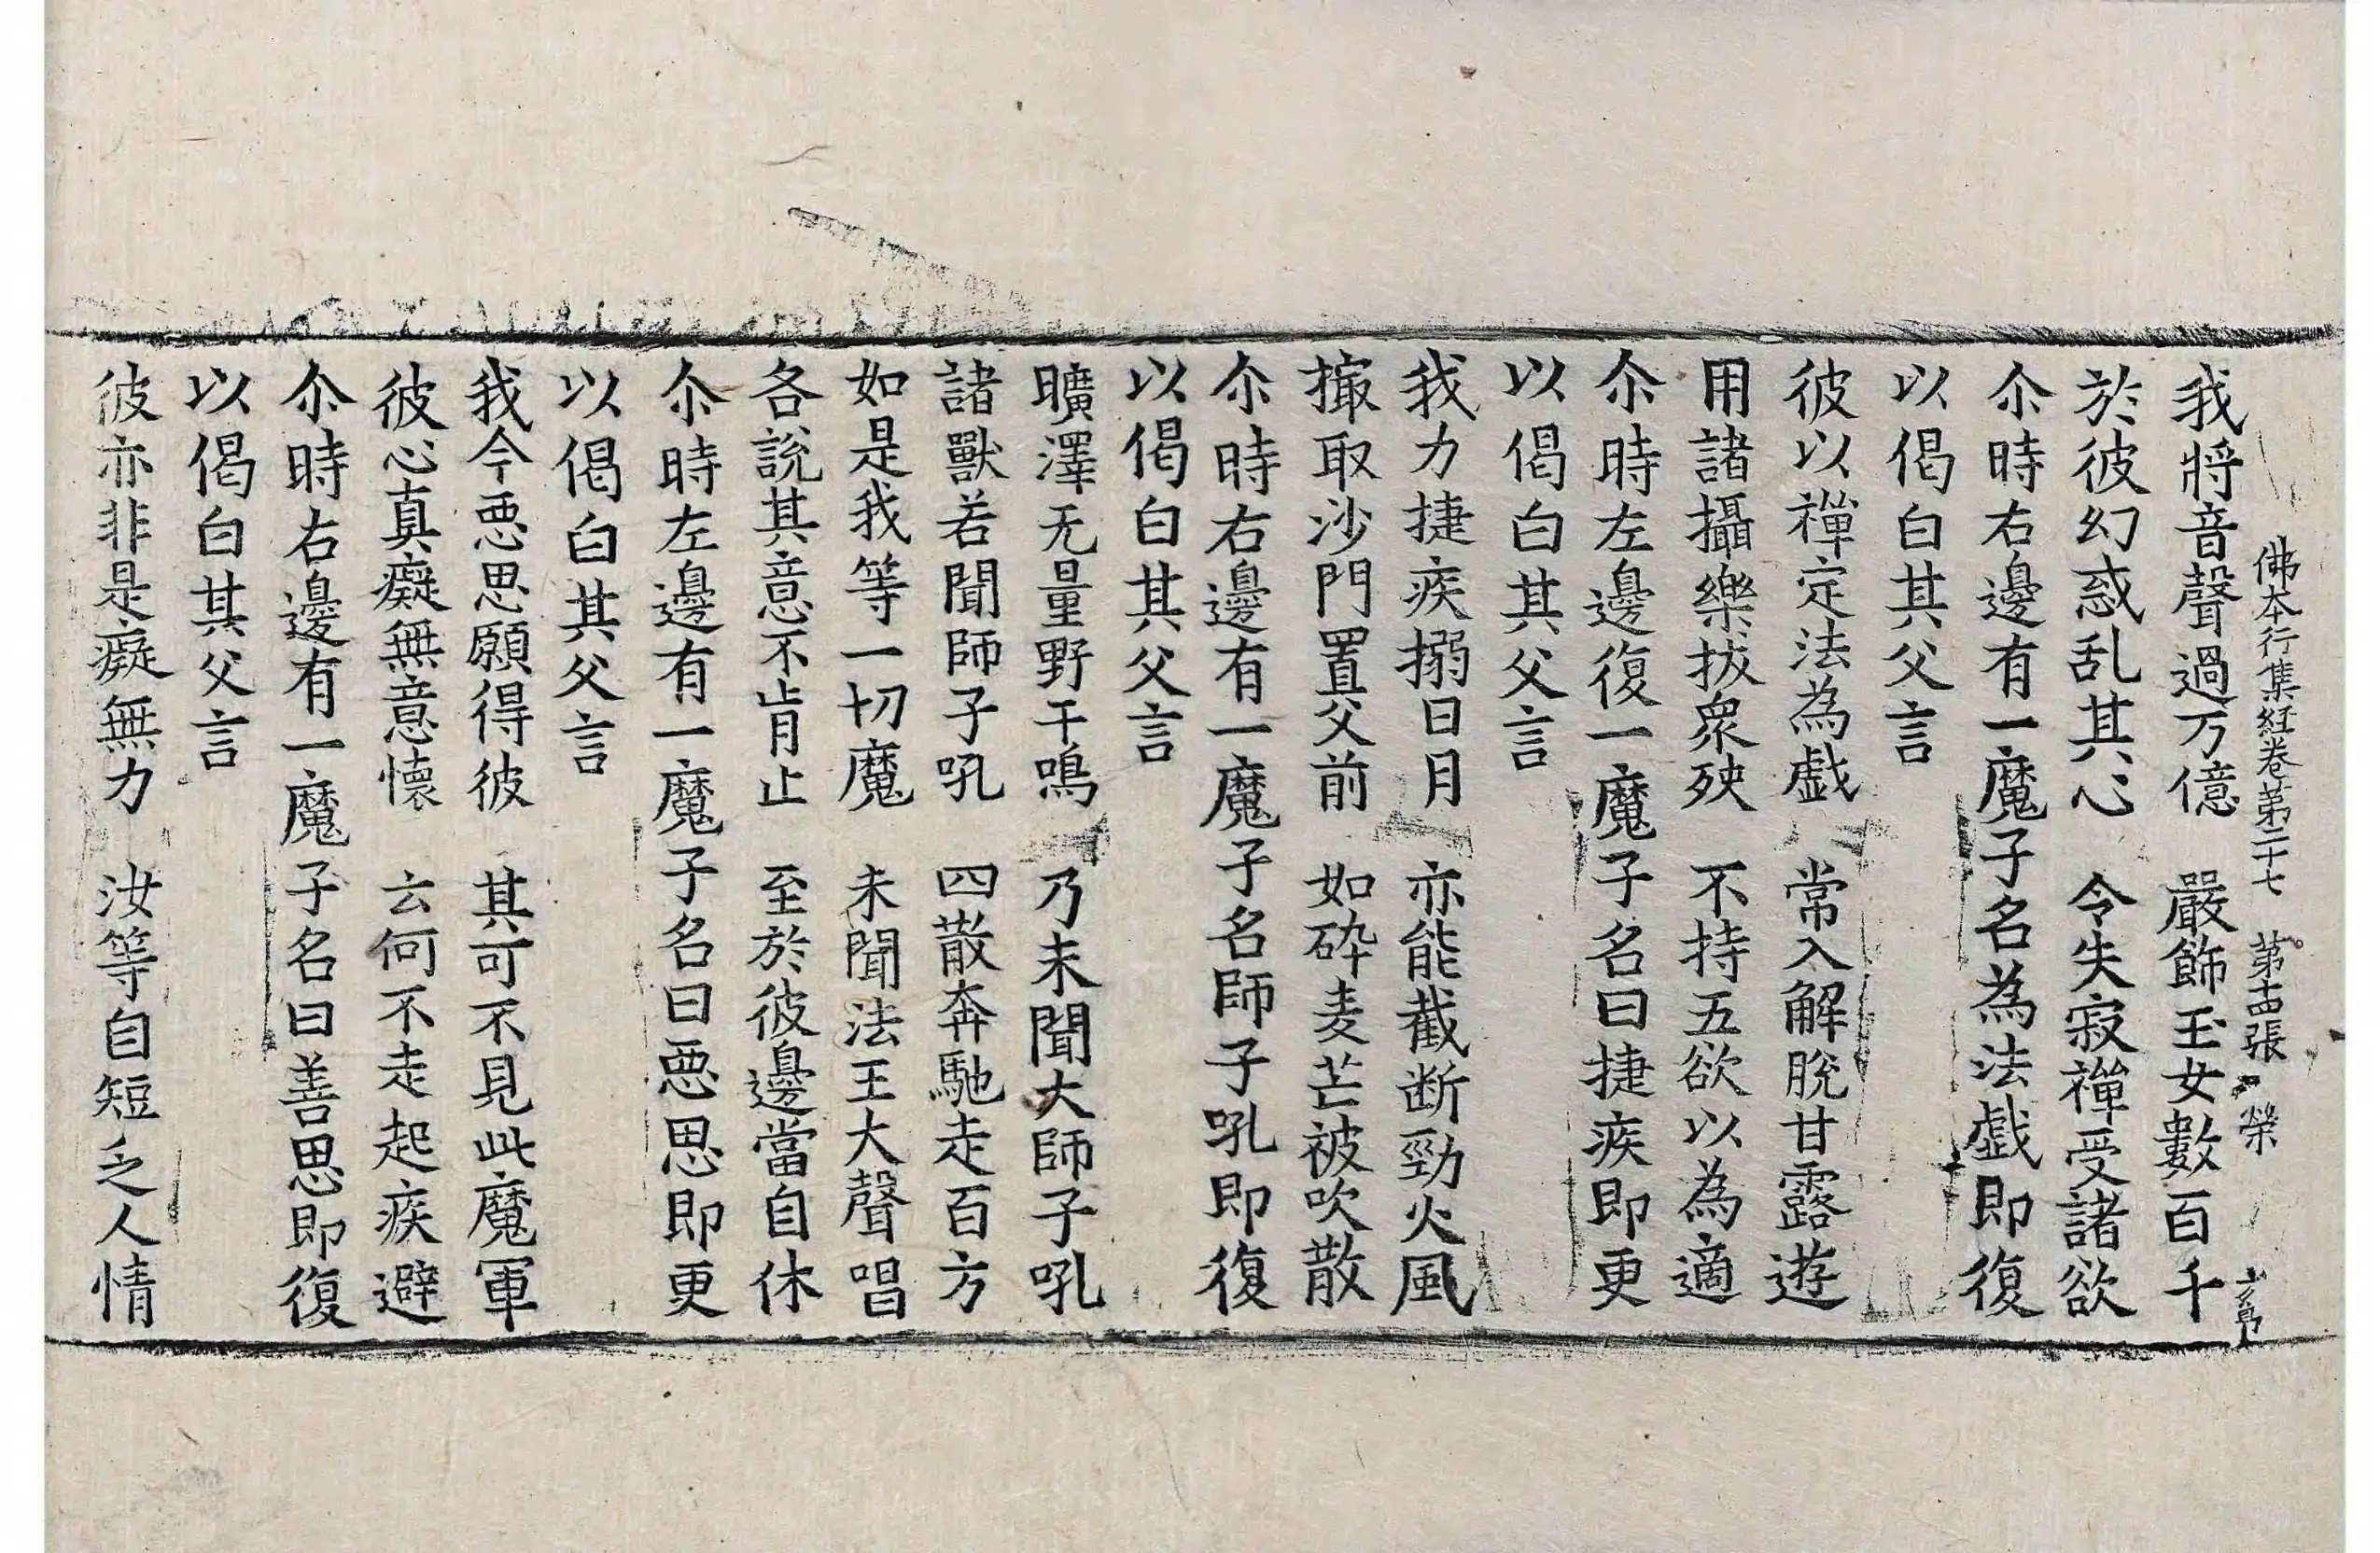 佛本行集經卷第二十七 第十四張 榮
我將音聲過万億 嚴飾玉女數百千
於彼幻惑乱其心 令失寂禪受諸欲
尒時右邊有一魔子名為法戲即復
以偈白其父言
彼以禪定法為戲 常入解脫甘露遊
用諸攝樂拔衆殃 不持五欲以為適
尒時左邊復一魔子名曰捷疾即更
以偈白其父言
我力捷疾搦日月 亦能截断勁火風
撮取沙門置父前 如碎麦芒被吹散
尒時右邊有一魔子名師子吼即復
以偈白其父言
曠澤无量野干鳴 乃未聞大師子吼
諸獸若聞師子吼 四散奔馳走百方
如是我等一切魔 未聞法王大聲唱
各說其意不肯止 至於彼邊當自休
尒時左邊有一魔子名曰惡思即更
以偈白其父言
我今惡思願得彼 其可不見此魔軍
彼心真癡無意懷 云何不走起疾避
尒時右邊有一魔子名曰善思即復
以偈白其父言
彼亦非是癡無力 汝等自短乏人情